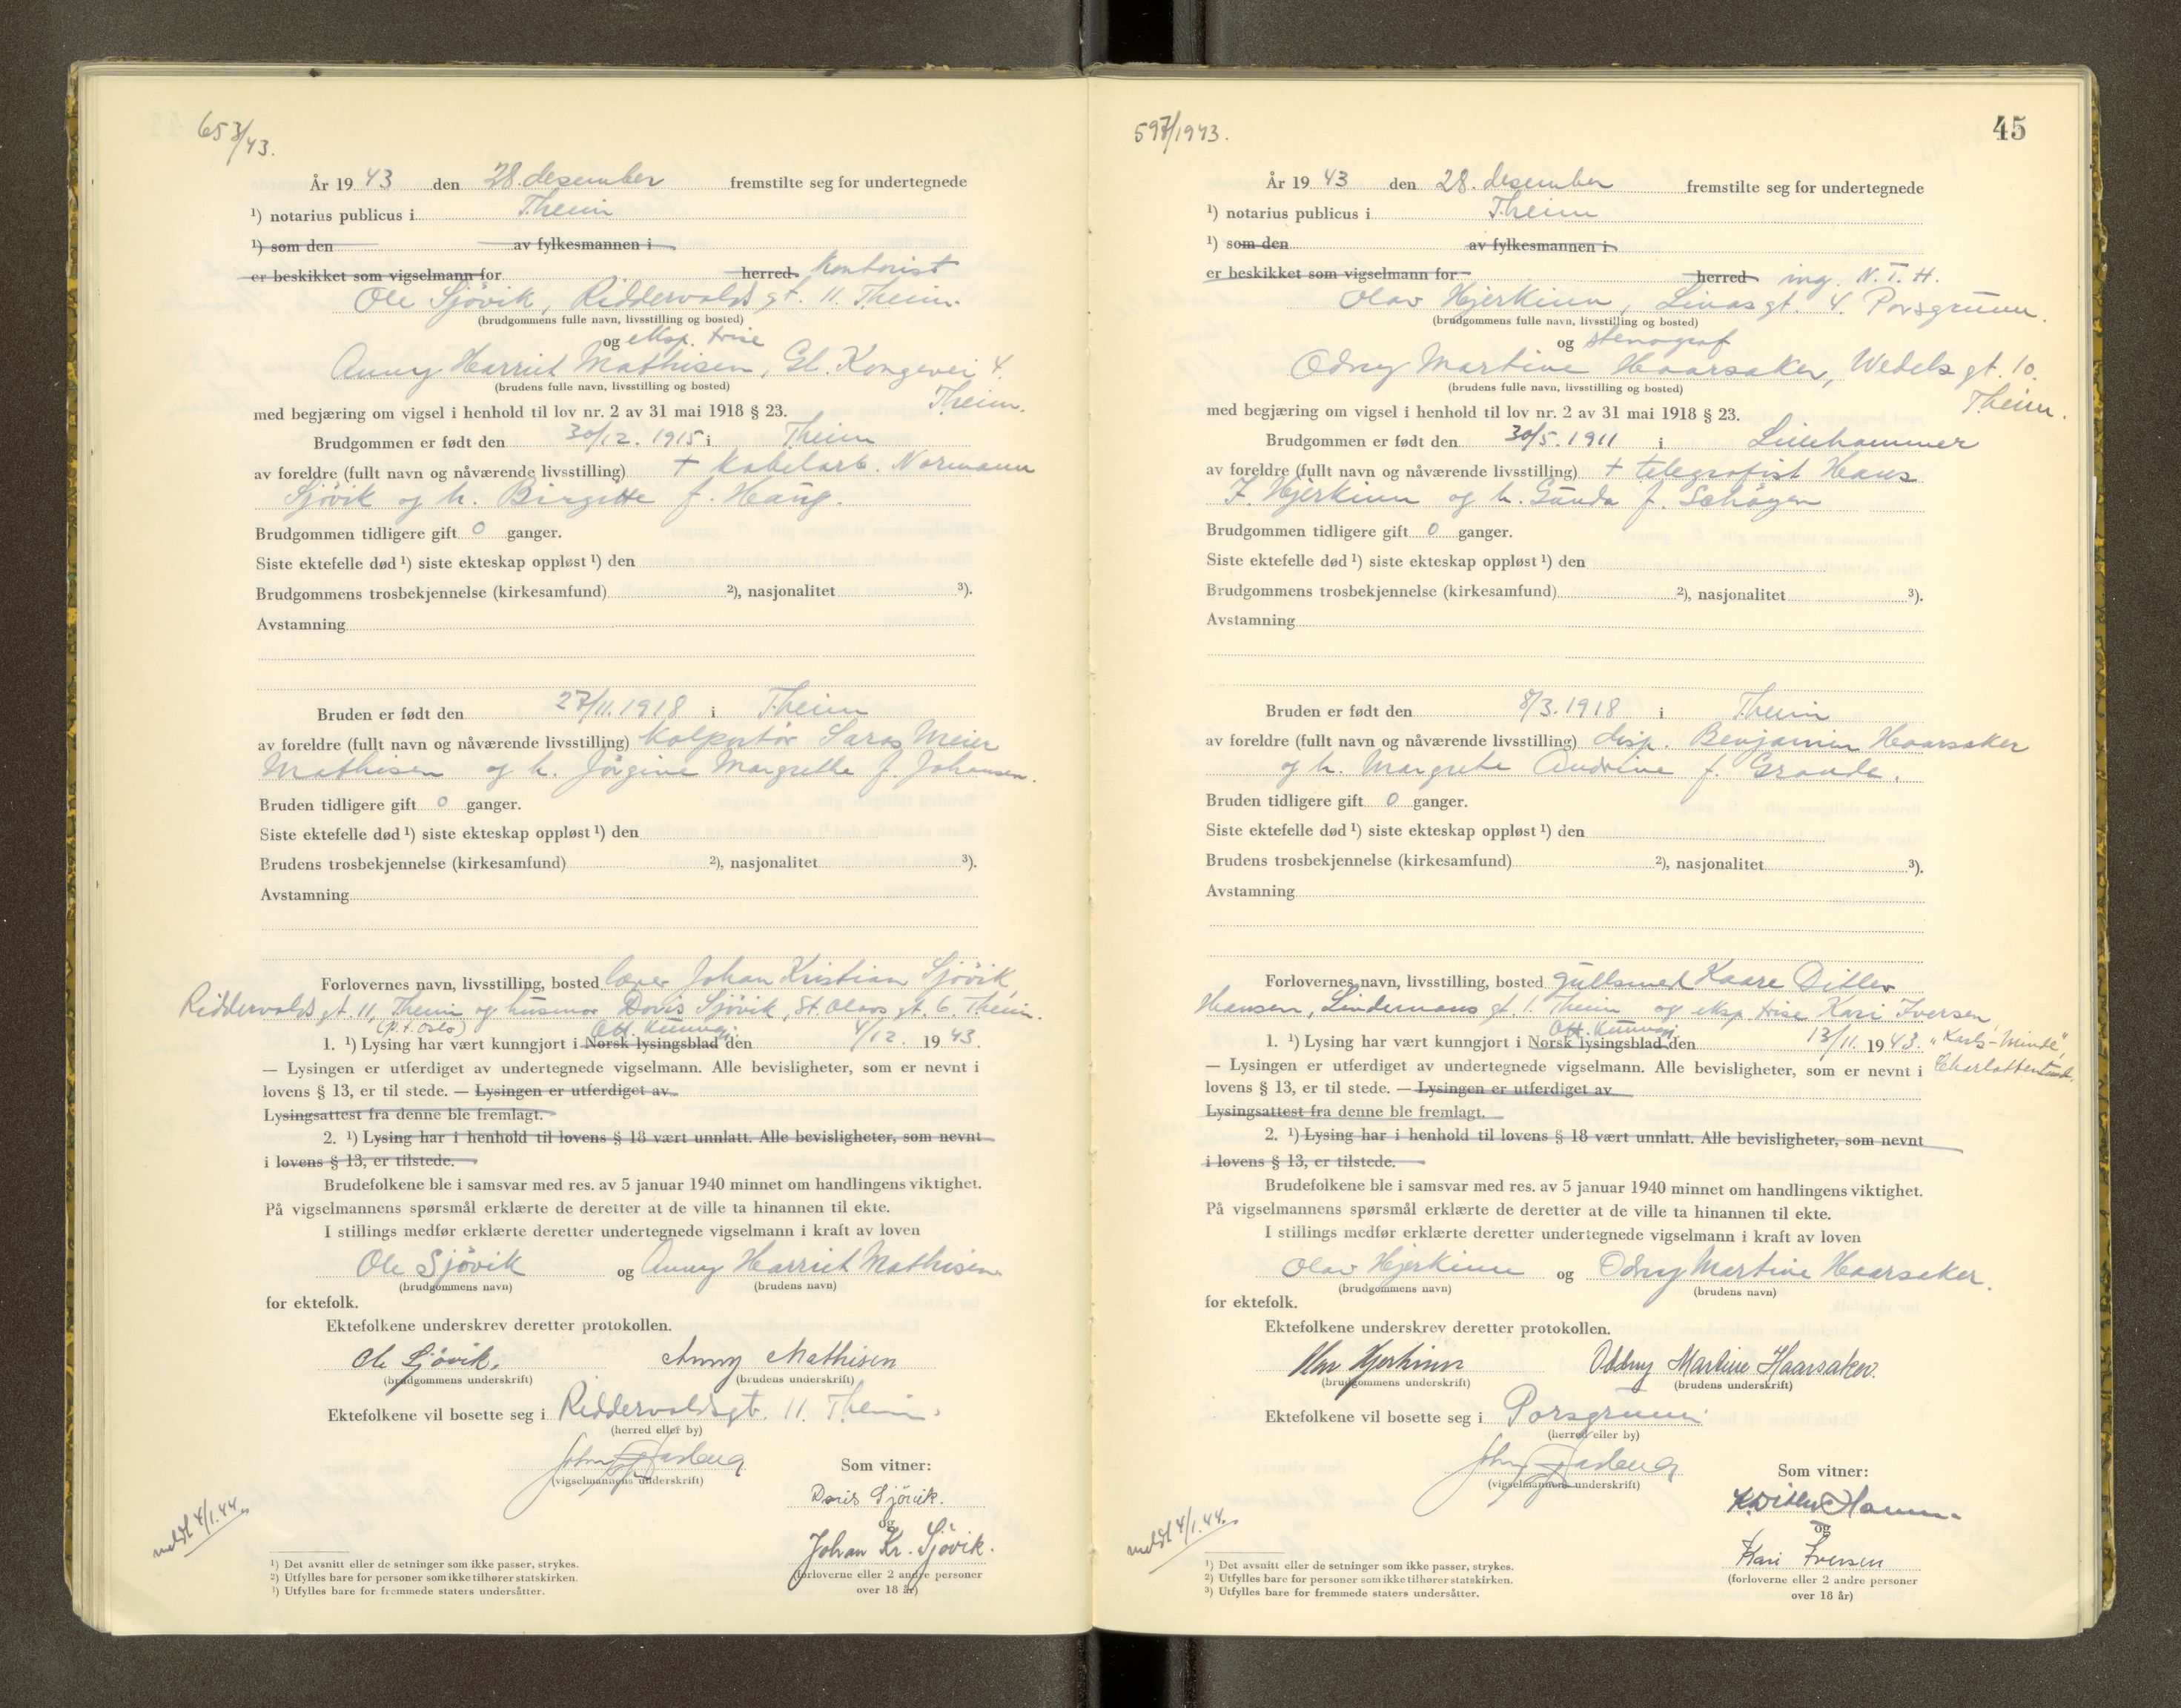 653/43.
År 19 43 den 28. desember fremstilte seg for undertegnede
¹) notarius publicus i Theim
¹) som den av fylkesmannen i
er beskikket som vigselmann for herred kontorist
Ole Sjövik, Riddervolds gt. 11. Theim.
(brudgommens fulle navn, livsstilling og bosted)
og eksp. trise
Anny Harriet Mathisen, Gl. Kongevei 4.
(brudens fulle navn, livsstilling og bosted)
Theim.
med begjæring om vigsel i henhold til lov nr. 2 av 31 mai 1918 § 23.
Brudgommen er født den 30/12. 1915 i Theim
av foreldre (fullt navn og nåværende livsstilling) + kabelarb. Normann
Sjövik og h. Birgitte f. Haug.
Brudgommen tidligere gift 0 ganger.
Siste ektefelle død ¹) siste ekteskap oppløst ¹) den
Brudgommens trosbekjennelse (kirkesamfund) ²), nasjonalitet ³).
Avstamning
Bruden er født den 27/11. 1918 i Theim
av foreldre (fullt navn og nåværende livsstilling) kolportör Meier
Mathisen og h. Jörgine Margrethe f. Johansen.
Bruden tidligere gift 0 ganger.
Siste ektefelle død ¹) siste ekteskap oppløst ¹) den
Brudens trosbekjennelse (kirkesamfund) ²), nasjonalitet ³).
Avstamning
Forlovernes navn, livsstilling, bosted Johan Kristian Sjövik,
Riddervolds gt. 11, Theim og husmor Doris Sjövik, St. Olavs gt. 6. Theim.
(p.t. Oslo) Off. kunngj.
1. ¹) Lysing har vært kunngjort i Norsk lysingsblad den 4/12. 19 43.
— Lysingen er utferdiget av undertegnede vigselmann. Alle bevisligheter, som er nevnt i
lovens § 13, er til stede. — Lysingen er utferdiget av
Lysingsattest fra denne ble fremlagt.
2. ¹) Lysing har i henhold til lovens § 18 vært unnlatt. Alle bevisligheter, som nevnt
i lovens § 13, er tilstede.
Brudefolkene ble i samsvar med res. av 5 januar 1940 minnet om handlingens viktighet.
På vigselmannens spørsmål erklærte de deretter at de ville ta hinannen til ekte.
I stillings medfør erklærte deretter undertegnede vigselmann i kraft av loven
Ole Sjövik og Anny Harriet Mathisen
(brudgommens navn) (brudens navn)
for ektefolk.
Ektefolkene underskrev deretter protokollen.
Ole Sjövik. Anny Mathisen
(brudgommens underskrift) (brudens underskrift)
Ektefolkene vil bosette seg i Riddervoldsgt. 11. Theim.
(herred eller by)
(vigselmannens underskrift)
Som vitner:
Doris Sjövik.
og
Johan Kr. Sjövik.
(forloverne eller 2 andre personer
over 18 år)
meldt 4/1.44.
¹) Det avsnitt eller de setninger som ikke passer, strykes.
²) Utfylles bare for personer som ikke tilhører statskirken.
³) Utfylles bare for fremmede staters undersåtter.
597/1943.
45
År 19 43 den 28. desember fremstilte seg for undertegnede
¹) notarius publicus i Theim
¹) som den av fylkesmannen i
er beskikket som vigselmann for herred ing. N.T.H.
Olav Hjerkinn, Linas gt. 4. Porsgrunn.
(brudgommens fulle navn, livsstilling og bosted)
og stenograf
Odny Martine Haarsaker, Wedels gt. 10.
(brudens fulle navn, livsstilling og bosted)
Theim.
med begjæring om vigsel i henhold til lov nr. 2 av 31 mai 1918 § 23.
Brudgommen er født den 30/5. 1911 i Lillehammer
av foreldre (fullt navn og nåværende livsstilling) + telegrafist Hans
J. Hjerkinn og h. Gunda f. Schöyen
Brudgommen tidligere gift 0 ganger.
Siste ektefelle død ¹) siste ekteskap oppløst ¹) den
Brudgommens trosbekjennelse (kirkesamfund) ²), nasjonalitet ³).
Avstamning
Bruden er født den 8/3. 1918 i Theim
av foreldre (fullt navn og nåværende livsstilling) disp. Benjamin Haarsaker
og h. Margrete Andrine f. Grande.
Bruden tidligere gift 0 ganger.
Siste ektefelle død ¹) siste ekteskap oppløst ¹) den
Brudens trosbekjennelse (kirkesamfund) ²), nasjonalitet ³).
Avstamning
Forlovernes navn, livsstilling, bosted gullsmed Kaare Ditlev
Hansen, Lindemans gt. 1. Theim og eksp. trise Kari Iversen,
Off. kunngj.
1. ¹) Lysing har vært kunngjort i Norsk lysingsblad den 13/11. 19 43. "Karls-Minde",
— Lysingen er utferdiget av undertegnede vigselmann. Alle bevisligheter, som er nevnt i Charlottenlund.
lovens § 13, er til stede. — Lysingen er utferdiget av
Lysingsattest fra denne ble fremlagt.
2. ¹) Lysing har i henhold til lovens § 18 vært unnlatt. Alle bevisligheter, som nevnt
i lovens § 13, er tilstede.
Brudefolkene ble i samsvar med res. av 5 januar 1940 minnet om handlingens viktighet.
På vigselmannens spørsmål erklærte de deretter at de ville ta hinannen til ekte.
I stillings medfør erklærte deretter undertegnede vigselmann i kraft av loven
Olav Hjerkinn og Odny Martine Haarsaker.
(brudgommens navn) (brudens navn)
for ektefolk.
Ektefolkene underskrev deretter protokollen.
Olav Hjerkinn Oddny Martine Haarsaker.
(brudgommens underskrift) (brudens underskrift)
Ektefolkene vil bosette seg i Porsgrunn.
(herred eller by)
(vigselmannens underskrift)
Som vitner:
K. Ditlev Hansen
og
Kari Iversen
(forloverne eller 2 andre personer
over 18 år)
meldt 4/1.44.
¹) Det avsnitt eller de setninger som ikke passer, strykes.
²) Utfylles bare for personer som ikke tilhører statskirken.
³) Utfylles bare for fremmede staters undersåtter.